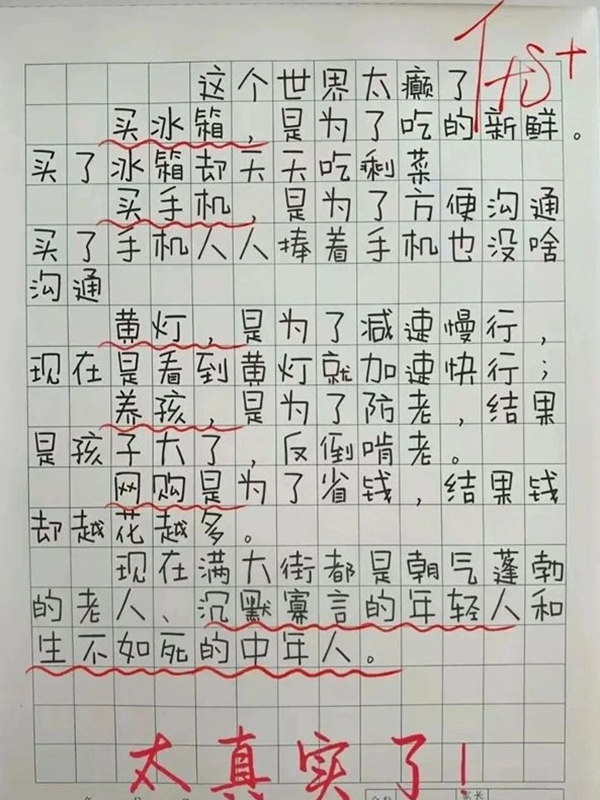 这个世界太癫了
买冰箱，是为了吃的新鲜。
买了冰箱却天天吃剩菜
买手机，是为了方便沟通
买了手机人人捧着手机也没啥
沟通
黄灯，是为了减速慢行，
现在是看到黄灯就加速快行；
养孩，是为了防老，结果
是孩子大了，反倒啃老。
网购是为了省钱，结果钱
却越花越多。
现在满大街都是朝气蓬勃
的老人、沉默寡言的年轻人和
生不如死的中年人。
太真实了！